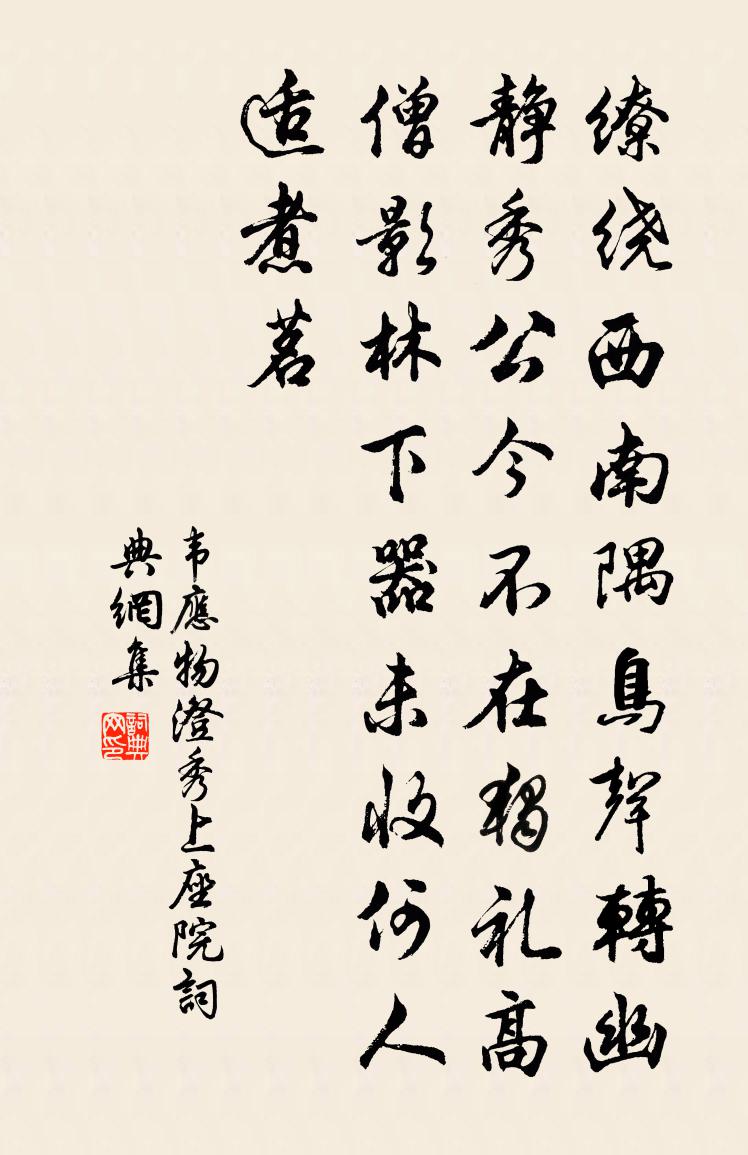 缭绕西南隅鳥聲轉幽
静秀公今不在獨礼高
僧影林下器未收何人
适煮茗
韦應物澄秀上座院詞
典網集
詞典网印